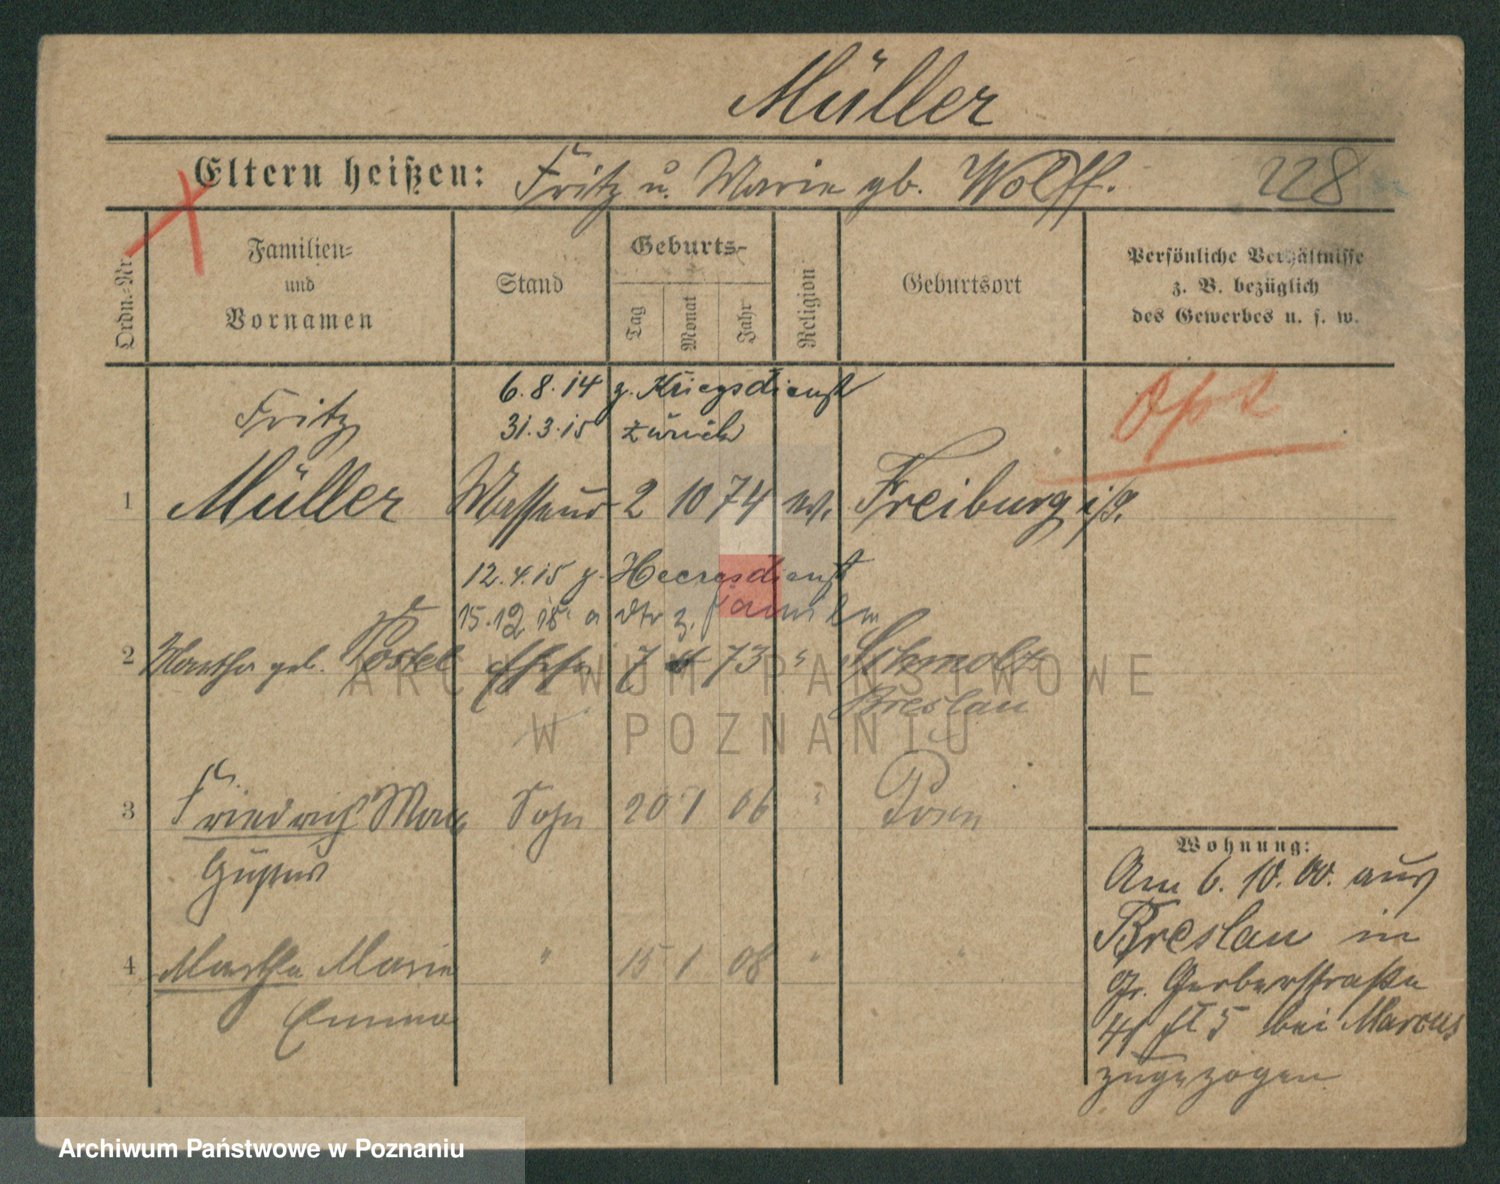 Müller
Eltern heißen: Fritz u. Marie gb. Wolff. 228
Ordn.-Nr.
Familien-
und
Vornamen
Stand
Geburts-
Tag
Monat
Jahr
Religion
Geburtsort
Persönliche Verhältnisse
z. B. bezüglich
des Gewerbes u. s. w.
6.8.14 z. Kriegsdienst
31.3.15 zurück
Fritz
1 Müller Masseur 2 10 74 ev. Freiburg i/
12.4.15 z. Heeresdienst
15.12
2 Martha geb. Postel Ehefr 7 73 " Schmolz
Breslau
3 Friedrich Max Sohn 20 1 06 " Posen
Gustav
4 Martha Marie " 15 1 08 " "
Emma
Wohnung:
Am 6. 10. 00. aus
Breslau in
Gr. Gerberstraße
bei Marcus
zugezogen
ARCHIWUM PAŃSTWOWE
W POZNANIU
Archiwum Państwowe w Poznaniu